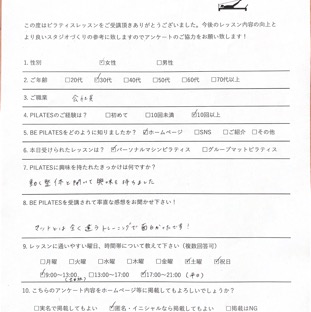 この度はピラティスレッスンをご受講頂きありがとうございました。今後のレッスン内容の向上と
より良いスタジオづくりの参考に致しますのでアンケートのご協力をお願い致します！
1. 性別 ☑女性 □男性
2. ご年齢 □20代 ☑30代 □40代 □50代 □60代 □70代以上
3. ご職業 会社員
4. PILATESのご経験は？ □初めて □10回未満 ☑10回以上
5. BE PILATESをどのように知りましたか？ ☑ホームページ □SNS □ご紹介 □その他
6. 本日受けられたレッスンは？ ☑パーソナルマシンピラティス □グループマットピラティス
7. PILATESに興味を持たれたきっかけは何ですか？
動く整体と聞いて興味を持ちました
8. BE PILATESを受講されて率直な感想をお聞かせ下さい！
マットとは全く違うトレーニングで面白かったです！
9. レッスンに通いやすい曜日、時間帯について教えて下さい（複数回答可）
□月曜 □火曜 □水曜 □木曜 □金曜 ☑土曜 ☑祝日
☑9:00~13:00 □13:00~17:00 ☑17:00~21:00 (平日)
10. こちらのアンケート内容をホームページ等に掲載してもよろしいでしょうか？
□実名で掲載してもよい ☑匿名・イニシャルなら掲載してもよい □掲載はNG